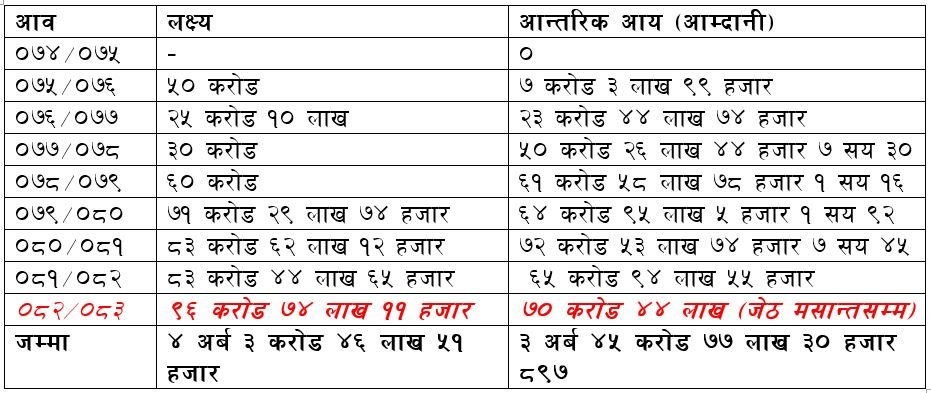 आव लक्ष्य आन्तरिक आय (आम्दानी)
०७४/०७५ - ०
०७५/०७६ ५० करोड ७ करोड ३ लाख ९९ हजार
०७६/०७७ २५ करोड १० लाख २३ करोड ४४ लाख ७४ हजार
०७७/०७८ ३० करोड ५० करोड २६ लाख ४४ हजार ७ सय ३०
०७८/०७९ ६० करोड ६१ करोड ५८ लाख ७८ हजार १ सय १६
०७९/०८० ७१ करोड २९ लाख ७४ हजार ६४ करोड ९५ लाख ५ हजार १ सय ९२
०८०/०८१ ८३ करोड ६२ लाख १२ हजार ७२ करोड ५३ लाख ७४ हजार ७ सय ४५
०८१/०८२ ८३ करोड ४४ लाख ६५ हजार ६५ करोड ९४ लाख ५५ हजार
०८२/०८३ ९६ करोड ७४ लाख ११ हजार ७० करोड ४४ लाख (जेठ मसान्तसम्म)
जम्मा ४ अर्ब ३ करोड ४६ लाख ५१ ३ अर्ब ४५ करोड ७७ लाख ३० हजार
हजार ८९७